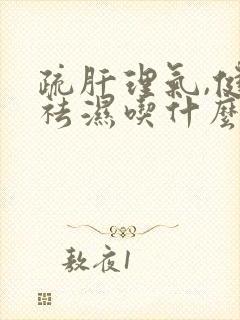 疏肝理氣,健
祛濕喫什麼
熬夜1